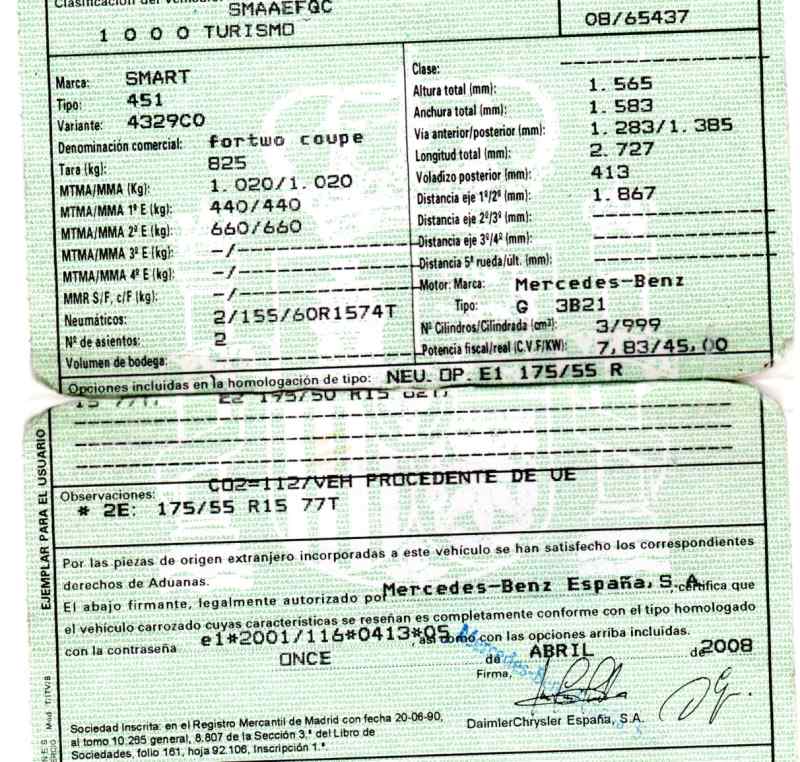 Clasificación del vehículo: SMAAEFQC
1 0 0 0 TURISMO
08/65437
Marca: SMART
Tipo: 451
Variante: 4329CO
Denominación comercial: fortwo coupe
Tara (kg): 825
MTMA/MMA (Kg): 1. 020/1. 020
MTMA/MMA 1º E (kg): 440/440
MTMA/MMA 2º E (kg): 660/660
MTMA/MMA 3º E (kg): -/--------------
MTMA/MMA 4º E (kg): -/--------------
MMR S/F, c/F (kg): -/--------------
Neumáticos: 2/155/60R1574T
Nº de asientos: 2
Volumen de bodega: ----------------
Clase: ----------------
Altura total (mm): 1. 565
Anchura total (mm): 1. 583
Via anterior/posterior (mm): 1. 283/1. 385
Longitud total (mm): 2. 727
Voladizo posterior (mm): 413
Distancia eje 1º/2º (mm): 1. 867
Distancia eje 2º/3º (mm): ----------------
Distancia eje 3º/4º (mm): ----------------
Distancia 5ª rueda/últ. (mm): ----------------
Motor: Marca: Mercedes-Benz
Tipo: G 3B21
Nº Cilindros/Cilindrada (cm³): 3/999
Potencia fiscal/real (C.V.F/KW): 7, 83/45, 00
Opciones incluidas en la homologación de tipo: NEU. OP. E1 175/55 R
15 77T, E2 195/50 R15 82T,
CO2=112/VEH PROCEDENTE DE UE
Observaciones:
# 2E: 175/55 R15 77T
EJEMPLAR PARA EL USUARIO
Por las piezas de origen extranjero incorporadas a este vehículo se han satisfecho los correspondientes
derechos de Aduanas.
El abajo firmante, legalmente autorizado por Mercedes-Benz España, S. A. ,certifica que
el vehículo carrozado cuyas características se reseñan es completamente conforme con el tipo homologado
con la contraseña e1*2001/116*0413*05 , así como con las opciones arriba incluidas.
ONCE de ABRIL de 2008
Firma,
DaimlerChrysler España, S.A.
Sociedad Inscrita: en el Registro Mercantil de Madrid con fecha 20-06-90,
al tomo 10.265 general, 8.807 de la Sección 3.ª del Libro de
Sociedades, folio 161, hoja 92.106, Inscripción 1.ª